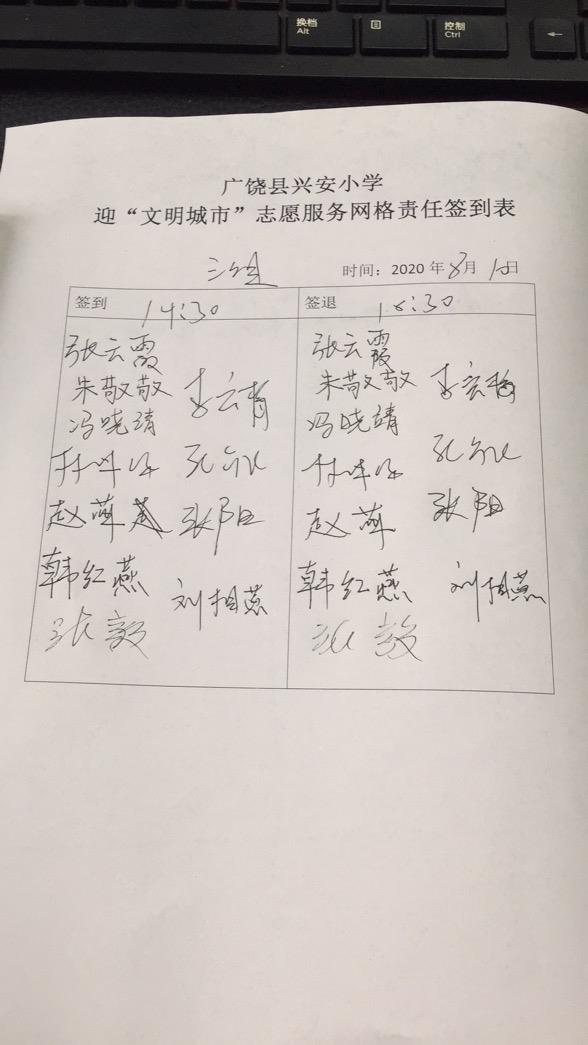 换档
Alt
控制
Ctrl
广饶县兴安小学
迎“文明城市”志愿服务网格责任签到表
时间：2020年8月 日
签到 14:30
签退 18:30
张云霞
朱敬敬
冯晓靖
赵萍 张阳
韩红燕 刘相燕
张毅
张云霞
朱敬敬
冯晓靖
赵萍 张阳
韩红燕 刘相燕
张毅